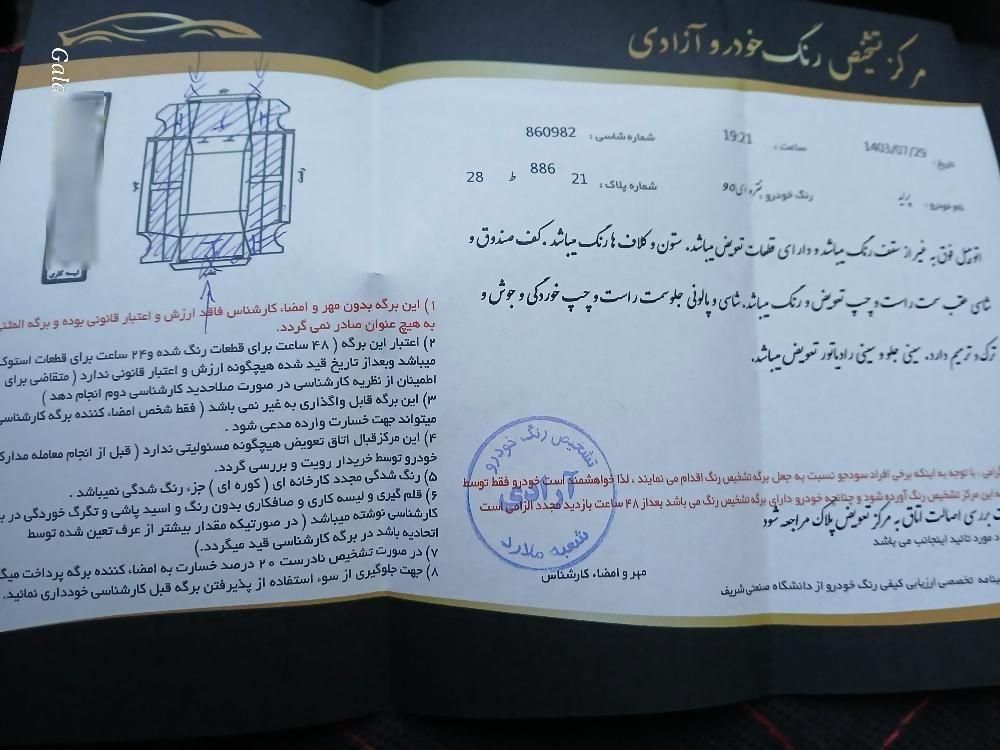 مرکز تشخیص رنگ خودرو آزادی
تاریخ: 1403/07/29 ساعت: 19:21 شماره شاسی: 860982
نام خودرو: پراید رنگ خودرو: نقره ای 90 شماره پلاک: 21 886 ط 28
اتومبیل فوق به غیر از سقف رنگ میباشد و دارای قطعات تعویض میباشد. ستون و کلاف ها رنگ میباشد. کف صندوق و
شاسی عقب سمت راست و چپ تعویض و رنگ میباشد. شاسی و پالونی جلو سمت راست و چپ خوردگی و جوش و
ترک و ترمیم دارد. سینی جلو و سینی رادیاتور تعویض میباشد.
با توجه به اینکه برخی افراد سودجو نسبت به جعل برگه تشخیص رنگ اقدام می نمایند، لذا خواهشمند است خودرو فقط توسط
این مرکز تشخیص رنگ آورده شود و چنانچه خودرو دارای برگه تشخیص رنگ می باشد بعداز ۴۸ ساعت بازدید مجدد الزامی است
بررسی اصالت اتاق به مرکز تعویض پلاک مراجعه شود
مورد تائید اینجانب می باشد
مهر و امضاء کارشناس
تخصصی ارزیابی کیفی رنگ خودرو از دانشگاه صنعتی شریف
تشخیص رنگ خودرو
آزادی
شعبه ملارد
Gala
لیسه کاری
۱) این برگه بدون مهر و امضاء کارشناس فاقد ارزش و اعتبار قانونی بوده و برگه المثنی
به هیچ عنوان صادر نمی گردد.
۲) اعتبار این برگه ( ۴۸ ساعت برای قطعات رنگ شده و۲۴ ساعت برای قطعات استوک
میباشد وبعداز تاریخ قید شده هیچگونه ارزش و اعتبار قانونی ندارد ( متقاضی برای
اطمینان از نظریه کارشناسی در صورت صلاحدید کارشناسی دوم انجام دهد )
۳) این برگه قابل واگذاری به غیر نمی باشد ( فقط شخص امضاء کننده برگه کارشناسی
میتواند جهت خسارت وارده مدعی شود .
۴) این مرکزقبال اتاق تعویض هیچگونه مسئولیتی ندارد ( قبل از انجام معامله مدارک
خودرو توسط خریدار رویت و بررسی گردد.
۵) رنگ شدگی مجدد کارخانه ای ( کوره ای ) جزء رنگ شدگی نمیباشد .
۶) قلم گیری و لیسه کاری و صافکاری بدون رنگ و اسید پاشی و تگرگ خوردگی در
کارشناسی نوشته میباشد ( در صورتیکه مقدار بیشتر از عرف تعین شده توسط
اتحادیه باشد در برگه کارشناسی قید میگردد.)
۷) در صورت تشخیص نادرست ۲۰ درصد خسارت به امضاء کننده برگه پرداخت
۸) جهت جلوگیری از سوء استفاده از پذیرفتن برگه قبل کارشناسی خودداری نمائید.